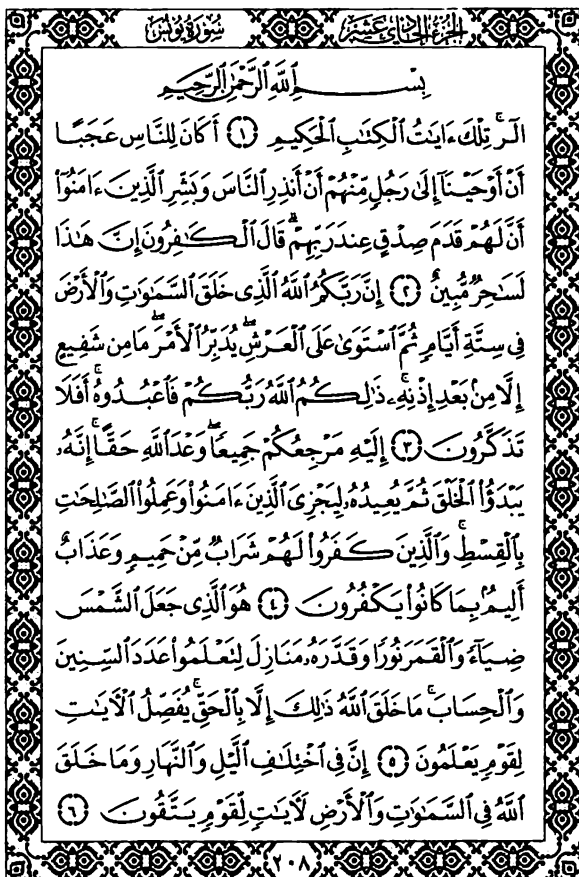 الجزء الحادي عشر
سورة يونس
بِسْمِ ٱللَّهِ ٱلرَّحْمَٰنِ ٱلرَّحِيمِ
الٓر ۚ تِلْكَ ءَايَٰتُ ٱلْكِتَٰبِ ٱلْحَكِيمِ ﴿١﴾ أَكَانَ لِلنَّاسِ عَجَبًا
أَنْ أَوْحَيْنَآ إِلَىٰ رَجُلٍ مِّنْهُمْ أَنْ أَنذِرِ ٱلنَّاسَ وَبَشِّرِ ٱلَّذِينَ ءَامَنُوٓا۟
أَنَّ لَهُمْ قَدَمَ صِدْقٍ عِندَ رَبِّهِمْ ۗ قَالَ ٱلْكَٰفِرُونَ إِنَّ هَٰذَا
لَسَٰحِرٌ مُّبِينٌ ﴿٢﴾ إِنَّ رَبَّكُمُ ٱللَّهُ ٱلَّذِى خَلَقَ ٱلسَّمَٰوَٰتِ وَٱلْأَرْضَ
فِى سِتَّةِ أَيَّامٍ ثُمَّ ٱسْتَوَىٰ عَلَى ٱلْعَرْشِ ۖ يُدَبِّرُ ٱلْأَمْرَ ۖ مَا مِن شَفِيعٍ
إِلَّا مِنۢ بَعْدِ إِذْنِهِۦ ۚ ذَٰلِكُمُ ٱللَّهُ رَبُّكُمْ فَٱعْبُدُوهُ ۚ أَفَلَا
تَذَكَّرُونَ ﴿٣﴾ إِلَيْهِ مَرْجِعُكُمْ جَمِيعًا ۖ وَعْدَ ٱللَّهِ حَقًّا ۚ إِنَّهُۥ
يَبْدَؤُا۟ ٱلْخَلْقَ ثُمَّ يُعِيدُهُۥ لِيَجْزِىَ ٱلَّذِينَ ءَامَنُوا۟ وَعَمِلُوا۟ ٱلصَّٰلِحَٰتِ
بِٱلْقِسْطِ ۚ وَٱلَّذِينَ كَفَرُوا۟ لَهُمْ شَرَابٌ مِّنْ حَمِيمٍ وَعَذَابٌ
أَلِيمٌۢ بِمَا كَانُوا۟ يَكْفُرُونَ ﴿٤﴾ هُوَ ٱلَّذِى جَعَلَ ٱلشَّمْسَ
ضِيَآءً وَٱلْقَمَرَ نُورًا وَقَدَّرَهُۥ مَنَازِلَ لِتَعْلَمُوا۟ عَدَدَ ٱلسِّنِينَ
وَٱلْحِسَابَ ۚ مَا خَلَقَ ٱللَّهُ ذَٰلِكَ إِلَّا بِٱلْحَقِّ ۚ يُفَصِّلُ ٱلْءَايَٰتِ
لِقَوْمٍ يَعْلَمُونَ ﴿٥﴾ إِنَّ فِى ٱخْتِلَٰفِ ٱلَّيْلِ وَٱلنَّهَارِ وَمَا خَلَقَ
ٱللَّهُ فِى ٱلسَّمَٰوَٰتِ وَٱلْأَرْضِ لَءَايَٰتٍ لِّقَوْمٍ يَتَّقُونَ ﴿٦﴾
٢٠٨